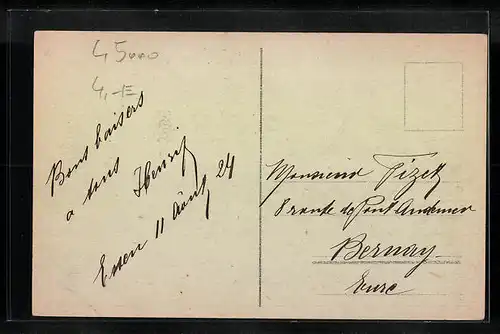 45000
4,-E
Bons baisers
a tous
Henri
Essen 11 Août 24
Monsieur Fizet
8 route de Pont Audemer
Bernay
Eure